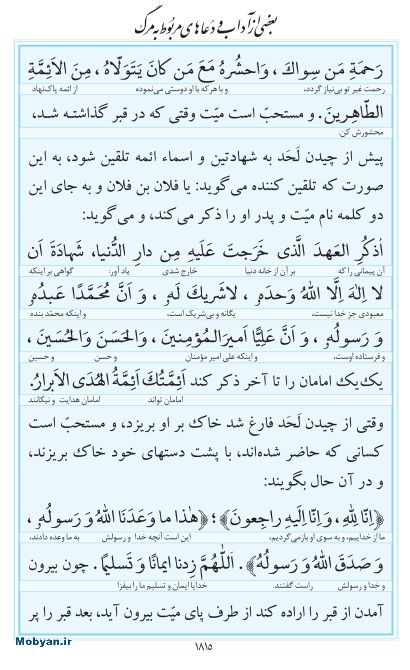 بعضی از آداب و دعاهای مربوط به مرگ
رَحمَةِ مَن سِواكَ ، وَاحشُرهُ مَعَ مَن كانَ يَتَوَلّاهُ ، مِنَ الاَئِمَّةِ
رحمت غیر تو بی‌نیاز گردد، و با هر که با او دوستی می‌نموده از ائمه پاک‌نهاد
الطّاهِرينَ. و مستحبّ است میّت وقتی که در قبر گذاشته شد،
محشورش کن.
پیش از چیدن لَحَد به شهادتین و اسماء ائمه تلقین شود، به این
صورت که تلقین کننده می‌گوید: یا فلان بن فلان و به جای این
دو کلمه نام میّت و پدر او را ذکر می‌کند، و می‌گوید:
اُذكُرِ العَهدَ الَّذی خَرَجتَ عَلَيهِ مِن دارِ الدُّنيا، شَهادَةَ اَن
آن پیمانی را که بر آن از خانه دنیا خارج شدی یاد آور: گواهی بر اینکه
لا اِلهَ اِلَّا اللهُ وَحدَهُ ، لاشَريكَ لَهُ ، وَ اَنَّ مُحَمَّدًا عَبدُهُ
معبودی جز خدا نیست، یگانه و بی‌شریک است، و اینکه محمّد بنده
وَ رَسولُهُ ، وَ اَنَّ عَلِيًّا اَميرُالمُؤمِنينَ، وَالحَسَنَ وَالحُسَينَ ،
و فرستاده اوست، و اینکه علی امیر مؤمنان و حسن و حسین
یک‌یک امامان را تا آخر ذکر کند اَئِمَّتُكَ اَئِمَّةُ الهُدَی الاَبرارُ.
امامان تواند امامان هدایت و نیکانند
وقتی از چیدن لَحَد فارغ شد خاک بر او بریزد، و مستحبّ است
کسانی که حاضر شده‌اند، با پشت دستهای خود خاک بریزند،
و در آن حال بگویند:
﴿اِنّا لِلّهِ، وَاِنّا اِلَيهِ راجِعونَ﴾؛ ﴿هٰذا ما وَعَدَنَا اللهُ وَ رَسولُهُ ،
ما از خداییم، و به سوی او بازمی‌گردیم، این است آنچه خدا و رسولش به ما وعده دادند،
وَ صَدَقَ اللهُ وَ رَسولُهُ﴾. اَللّهُمَّ زِدنا ايمانًا وَ تَسليمًا. چون بیرون
و خدا و رسولش راست گفتند. خدایا ایمان و تسلیم ما را بیفزا
آمدن از قبر را اراده کند از طرف پای میّت بیرون آید، بعد قبر را پر
Mobyan.ir
۱۸۱۵